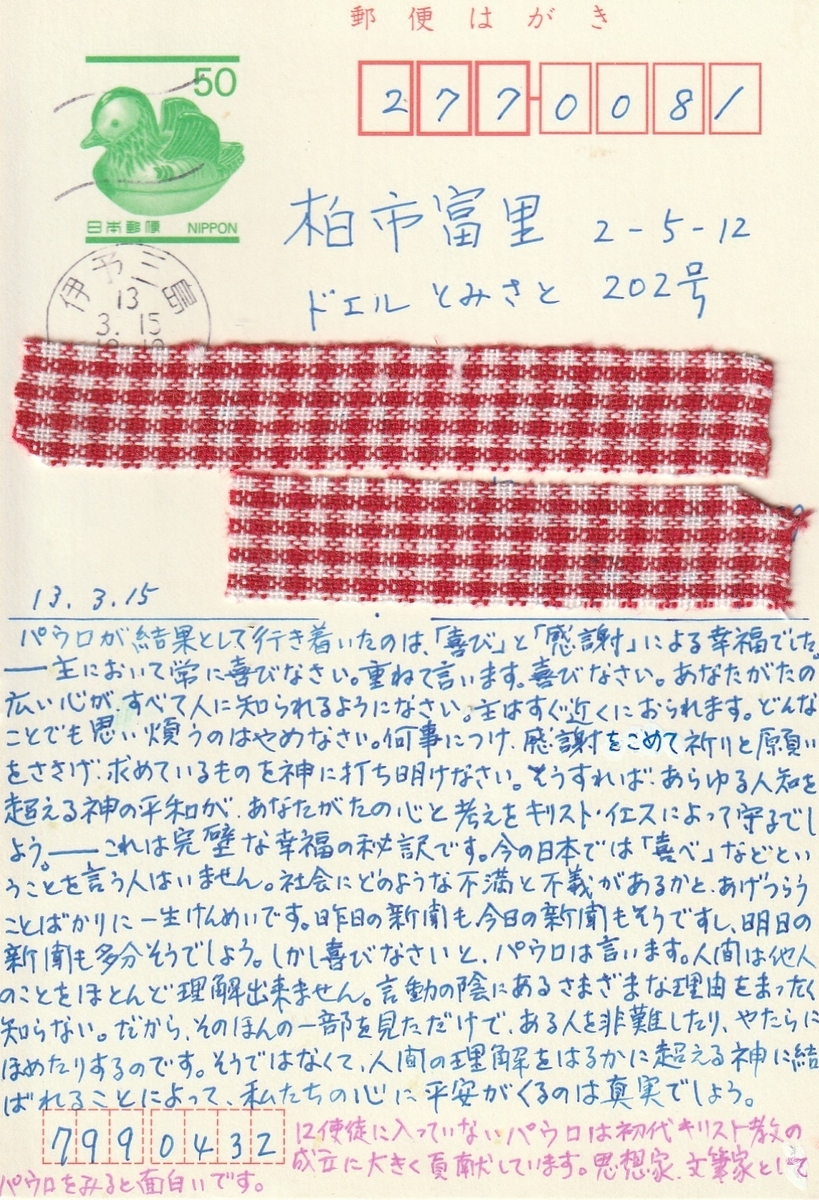 郵便はがき
50
日本郵便 NIPPON
277-0081
柏市富里 2-5-12
ドエルとみさと 202号
伊予三島
13
3.15
13.3.15
パウロが結果として行き着いたのは、「喜び」と「感謝」による幸福でした。
――主において常に喜びなさい。重ねて言います。喜びなさい。あなたがたの
広い心が、すべて人に知られるようになさい。主はすぐ近くにおられます。どんな
ことでも思い煩うのはやめなさい。何事につけ、感謝をこめて祈りと願い
をささげ、求めているものを神に打ち明けなさい。そうすれば、あらゆる人知を
超える神の平和が、あなたがたの心と考えをキリスト・イエスによって守るでし
ょう。――これは完璧な幸福の秘訳です。今の日本では「喜べ」などとい
うことを言う人はいません。社会にどのような不満と不義があるかと、あげつらう
ことばかりに一生けんめいです。昨日の新聞も、今日の新聞もそうですし、明日の
新聞も多分そうでしょう。しかし喜びなさいと、パウロは言います。人間は他人
のことをほとんど理解出来ません。言動の陰にあるさまざまな理由をまったく
知らない。だから、そのほんの一部を見ただけで、ある人を非難したり、やたらに
ほめたりするのです。そうではなくて、人間の理解をはるかに超える神に結
ばれることによって、私たちの心に平安がくるのは真実でしょう。
7990432
12使徒に入っていないパウロは初代キリスト教の
成立に大きく貢献しています。思想家、文筆家として
パウロをみると面白いです。